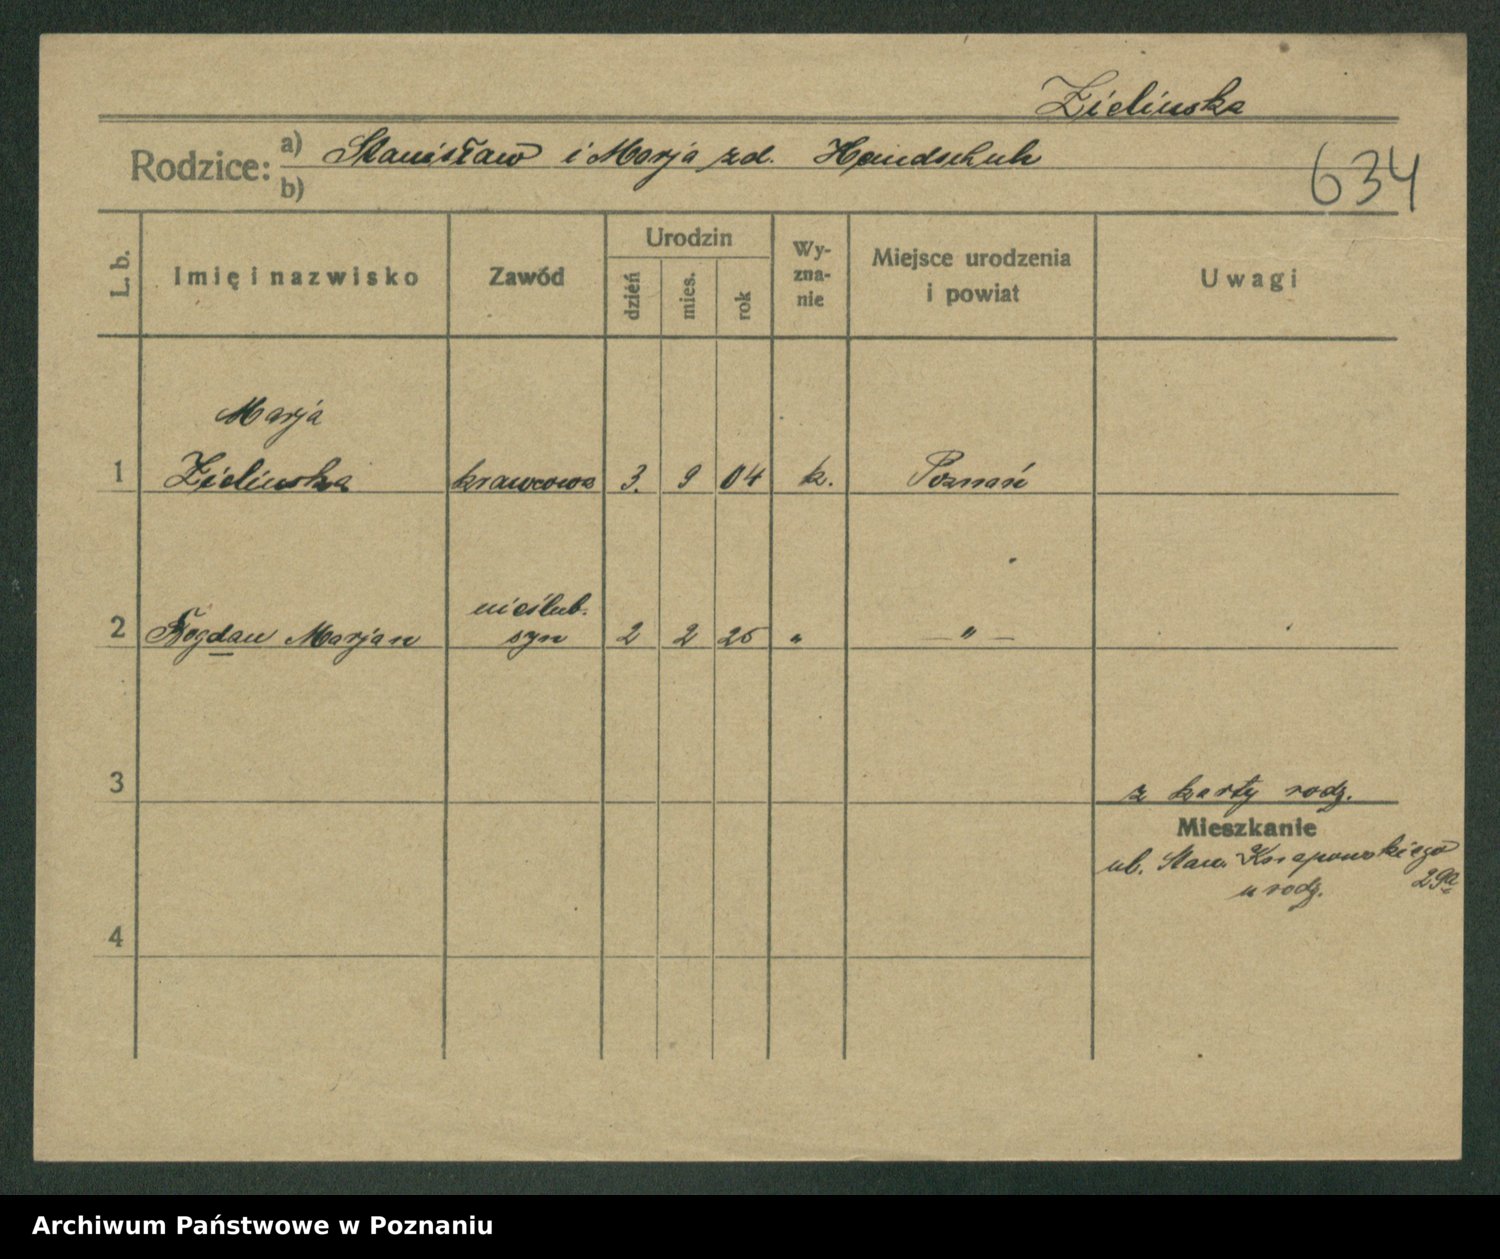 Zielinska
Rodzice: a) Stanisław i Marja zd. Handschuh
b)
634
L. b.
Imię i nazwisko
Zawód
Urodzin
dzień
mies.
rok
Wy-
zna-
nie
Miejsce urodzenia
i powiat
Uwagi
Marja
1 Zielinska krawcowa 3. 9 04 k. Poznań
nieślub.
2 Bogdan Marjan syn 2 2 25 " — " —
3
z karty rodz.
Mieszkanie
ul. Staw.
29a
u rodz.
4
Archiwum Państwowe w Poznaniu